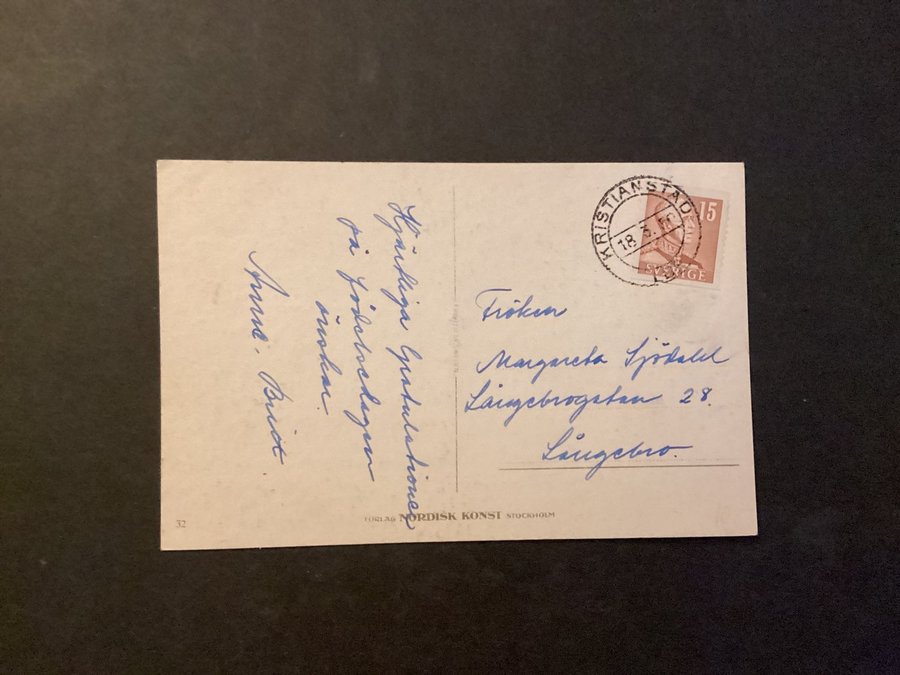 Hjärtliga Gratulationer
på födelsedagen
önskar.
Anne. Britt.
KRISTIANSTAD
18. 3.
15
SVERIGE
Fröken
Margareta Sjödahl
Långebrogatan 28.
Långebro.
32
FÖRLAG NORDISK KONST STOCKHOLM